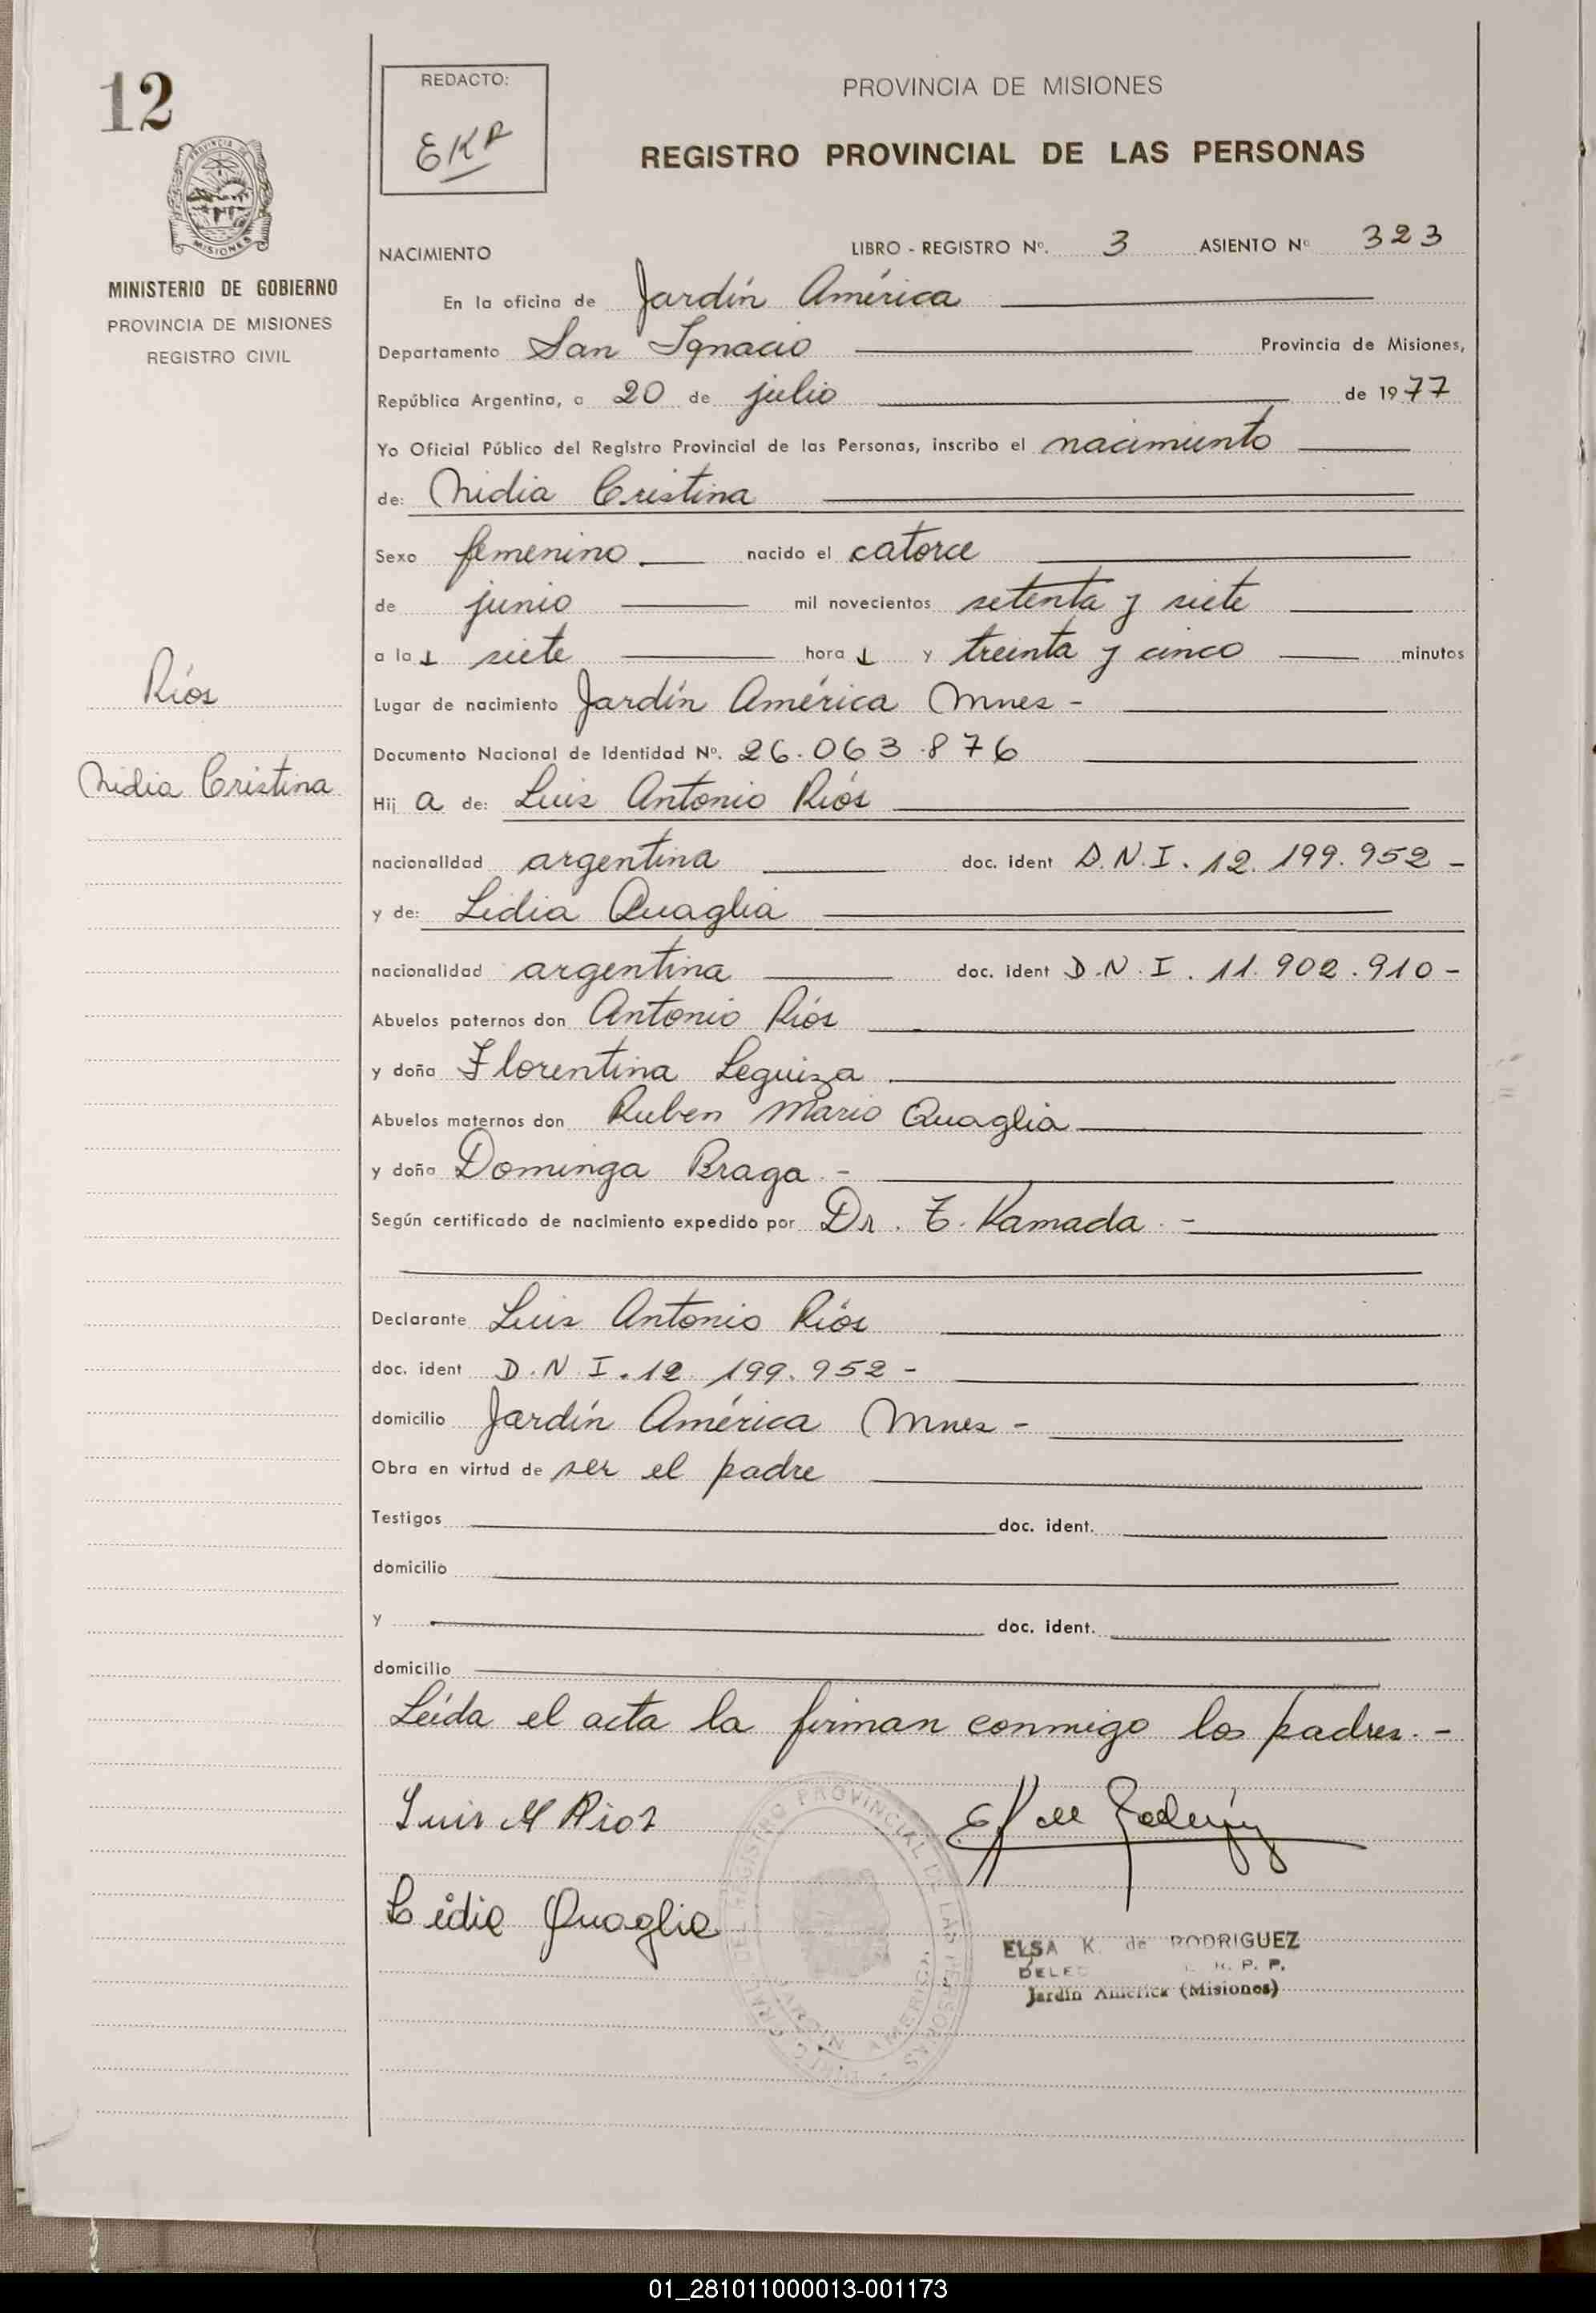 12
REDACTO:
EKR
PROVINCIA DE MISIONES
REGISTRO PROVINCIAL DE LAS PERSONAS
PROVINCIA DE
MISIONES
MINISTERIO DE GOBIERNO
PROVINCIA DE MISIONES
REGISTRO CIVIL
NACIMIENTO LIBRO - REGISTRO Nº. 3 ASIENTO Nº 323
En la oficina de Jardín América
Departamento San Ignacio Provincia de Misiones,
República Argentina, a 20 de julio de 1977
Yo Oficial Público del Registro Provincial de las Personas, inscribo el nacimiento
de: Nidia Cristina
Sexo femenino nacido el catorce
de junio mil novecientos setenta y siete
a la s siete hora s y treinta y cinco minutos
Ríos
Lugar de nacimiento Jardín América Mnes -
Documento Nacional de Identidad Nº. 26.063.876
Nidia Cristina
Hij a de: Luis Antonio Ríos
nacionalidad argentina doc. ident D.N.I. 12.199.952 -
y de: Lidia Quaglia
nacionalidad argentina doc. ident D.N.I. 11.902.910 -
Abuelos paternos don Antonio Ríos
y doña Florentina Leguiza
Abuelos maternos don Ruben Mario Quaglia
y doña Dominga Braga -
Según certificado de nacimiento expedido por Dr. T. Kamada -
Declarante Luis Antonio Ríos
doc. ident D.N.I. 12.199.952 -
domicilio Jardín América Mnes -
Obra en virtud de ser el padre
Testigos doc. ident.
domicilio
y doc. ident.
domicilio
Leída el acta la firman conmigo los padres. -
Luis A Rios
Lidia Quaglia
REGISTRO PROVINCIAL DE LAS PERSONAS
JARDIN AMERICA
ELSA K. de RODRIGUEZ
R. P. P.
Jardín América (Misiones)
01_281011000013-001173